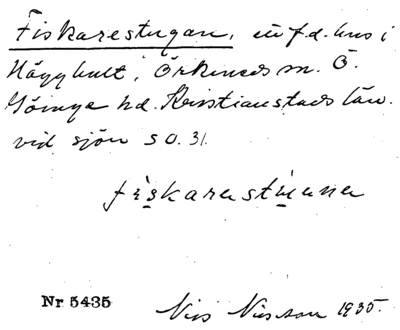 Fiskarestugan, ett f.d. hus i
Hägghult, Örkeneds sn. Ö.
Göinge hd. Kristianstads län.
vid sjön SO. 31.
fiskarastuena
Nr 5435
Nils Nilsson 1935.